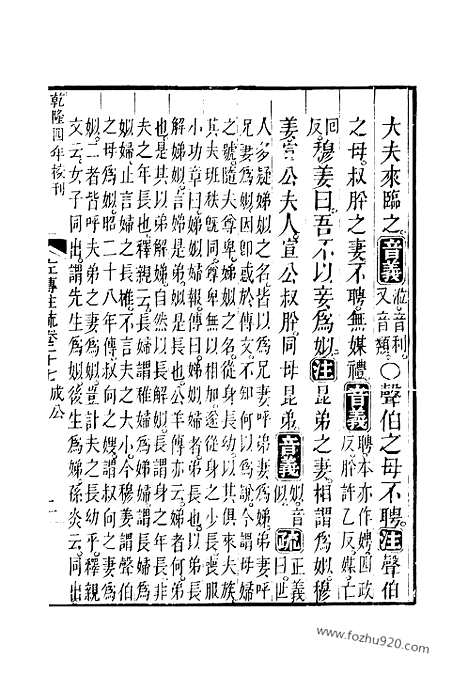 大夫來臨之音義涖音利又音類〇聲伯之母不聘注聲伯
之母叔肸之妻不聘無媒禮音義聘本亦作娉匹政反肸許乙反媒亡
回反穆姜曰吾不以妾爲姒注昆弟之妻相謂爲姒穆
姜宣公夫人宣公叔肸同母昆弟音義姒音似疏正義曰世
人多疑娣姒之名皆以爲兄妻呼弟妻爲娣弟妻呼
兄妻爲姒因卽惑於傳文不知何以爲說今謂母婦
之號隨夫尊卑娣姒之名從身長幼以其俱來夫族
其夫班秩旣同尊卑無以相加遂從身之少長喪服
小功章曰娣姒婦報傳曰娣姒婦者弟長也以弟長
解娣姒言婦是弟姒是長也公羊傳亦云娣者何弟
也是其以弟解娣自然以長解姒長謂身之年長非
夫之年長也釋親云長婦謂稚婦爲娣婦娣婦謂長婦爲
姒婦止言婦之長稚不言夫之大小今穆姜謂聲伯
之母爲姒昭二十八年傳叔向之嫂謂叔向之妻爲
姒二者皆呼夫弟之妻爲姒豈計夫之長幼乎釋親
文云女子同出謂先生爲姒後生爲娣孫炎云同出
乾隆四年校刊
左傳注疏卷二十七成公